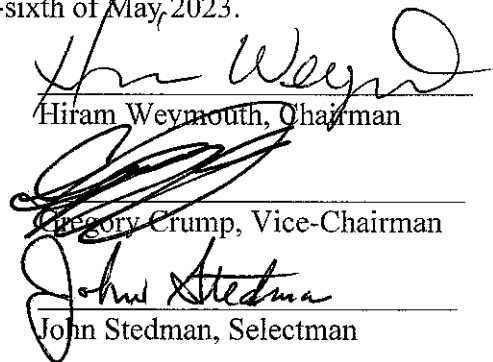 -sixth of May, 2023.
H Weym
Hiram Weymouth, Chairman
Gregory Crump, Vice-Chairman
John Stedman
John Stedman, Selectman